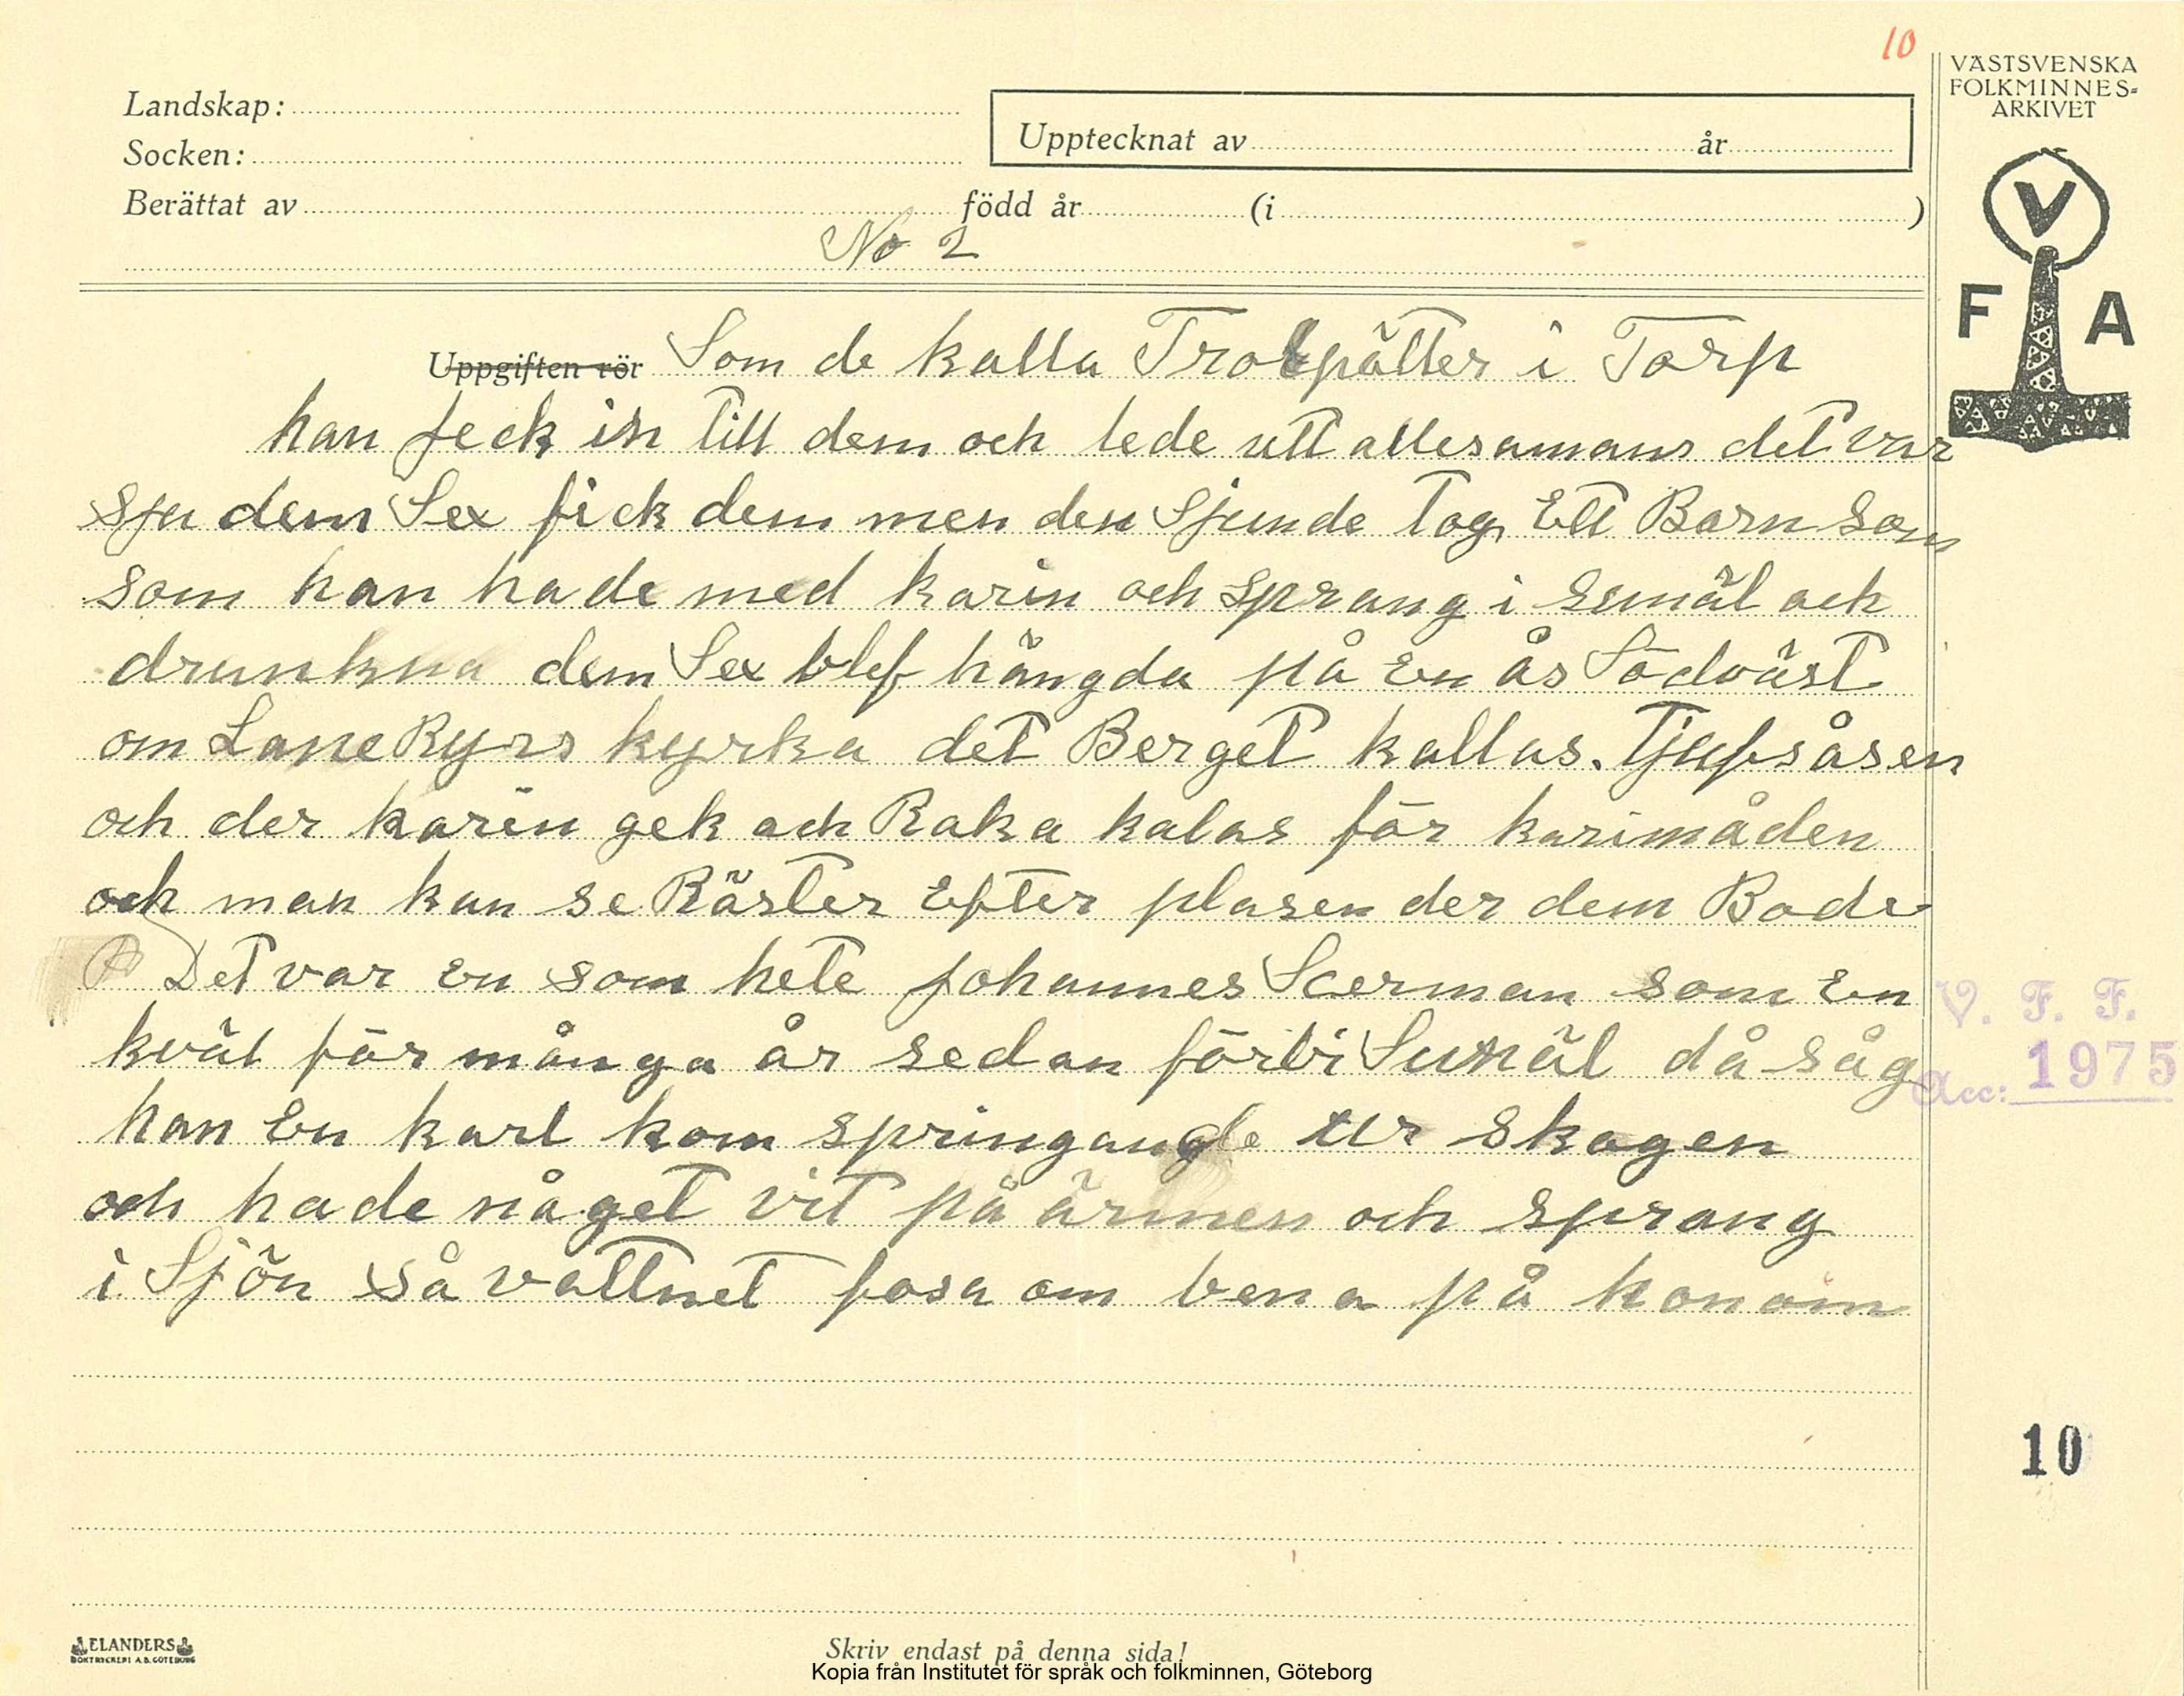 10
VÄSTSVENSKA
FOLKMINNES-
ARKIVET
Landskap:
Socken:
Upptecknat av år
Berättat av född år (i )
No 2
V
F A
Uppgiften rör Som de kalla Trolpätter i Torp
han feck in till dem och lede utt allesamans det var
sju dem Sex fick dem men den Sjunde Tog Ett Barn som
som han hade med karin och sprang i sunäl och
drunkna dem Sex blef hängda på En ås Södväst
om LaneRyrs kyrka det Berget kallas. Tjufsåsen
och der karin gek och Raka kalas för karimåden
och man kan se Räster Efter plasen der dem Bode
Det var En som hete Johannes Scerman som En
kväl för många år sedan förbi Sunäl då såg
han En karl kom springangde ur skogen
och hade något vit på ärmen och sprang
i Sjön så vattnet fosa om bena på honom
V. F. F.
Acc: 1975
10
ELANDERS
BOKTRYCKERI A.B. GÖTEBORG
Skriv endast på denna sida!
Kopia från Institutet för språk och folkminnen, Göteborg